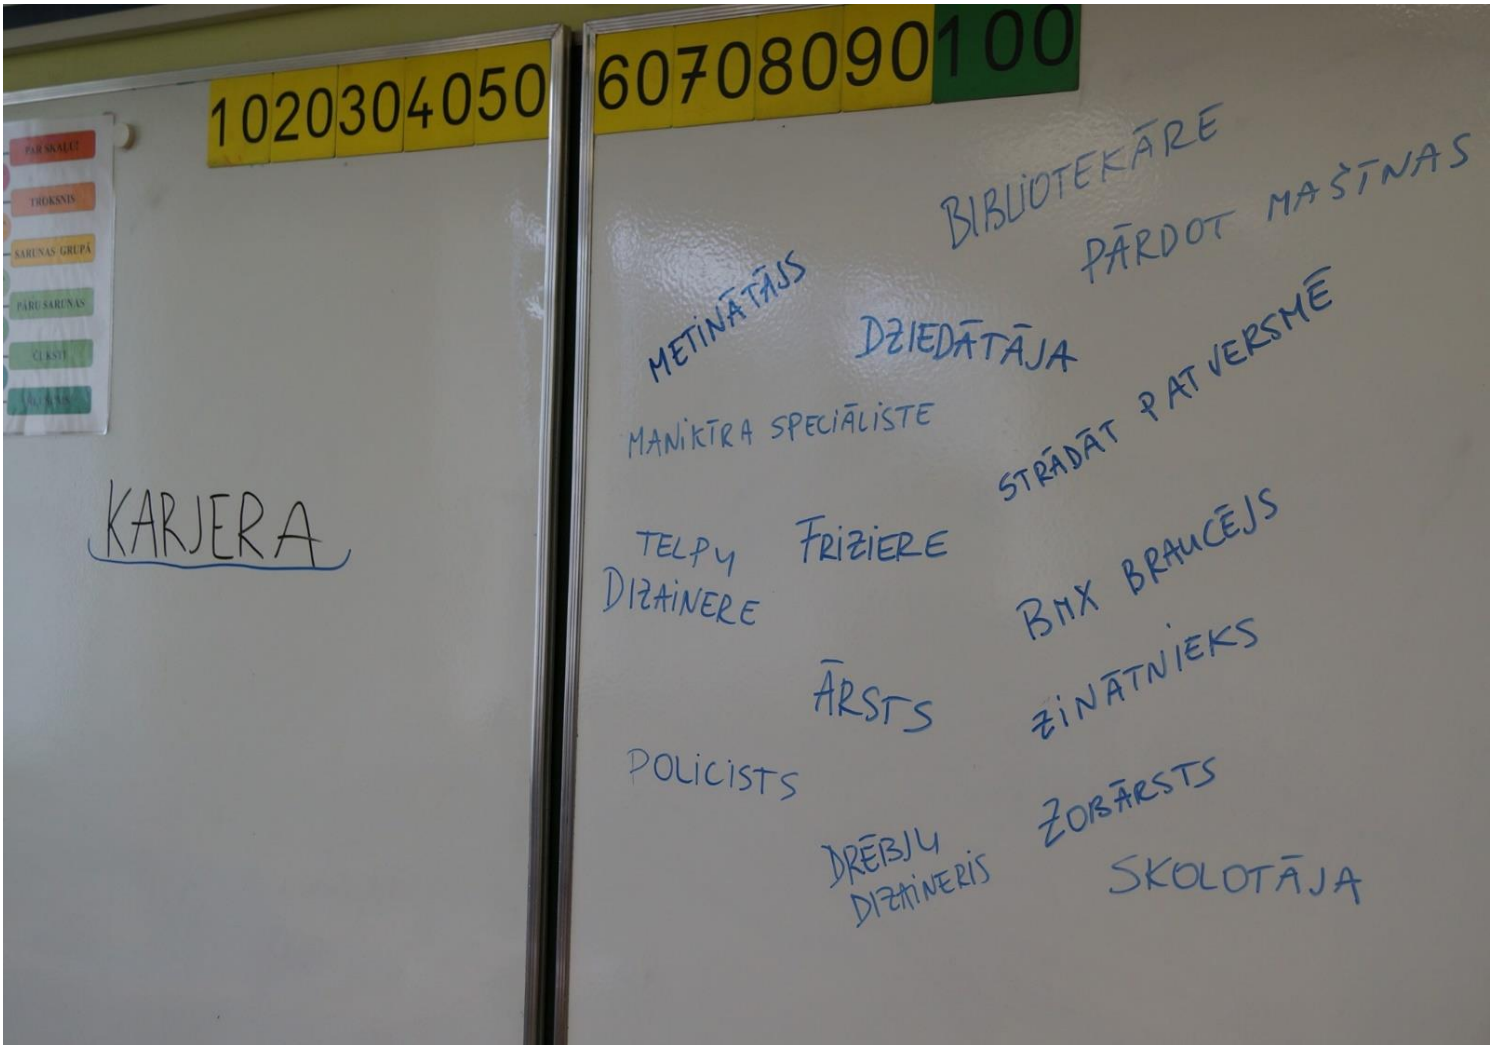 10 20 30 40 50 60 70 80 90 100
PAR SKAĻU!
TROKSNIS
SARUNAS GRUPĀ
PĀRU SARUNAS
ČUKSTI
KARJERA
BIBLIOTEKĀRE
PĀRDOT MAŠĪNAS
METINĀTĀJS
DZIEDĀTĀJA
MANIKĪRA SPECIĀLISTE
STRĀDĀT PATVERSMĒ
TELPU
DIZAINERE
FRIZIERE
BMX BRAUCĒJS
ĀRSTS
ZINĀTNIEKS
POLICISTS
ZOBĀRSTS
DRĒBJU
DIZAINERIS
SKOLOTĀJA